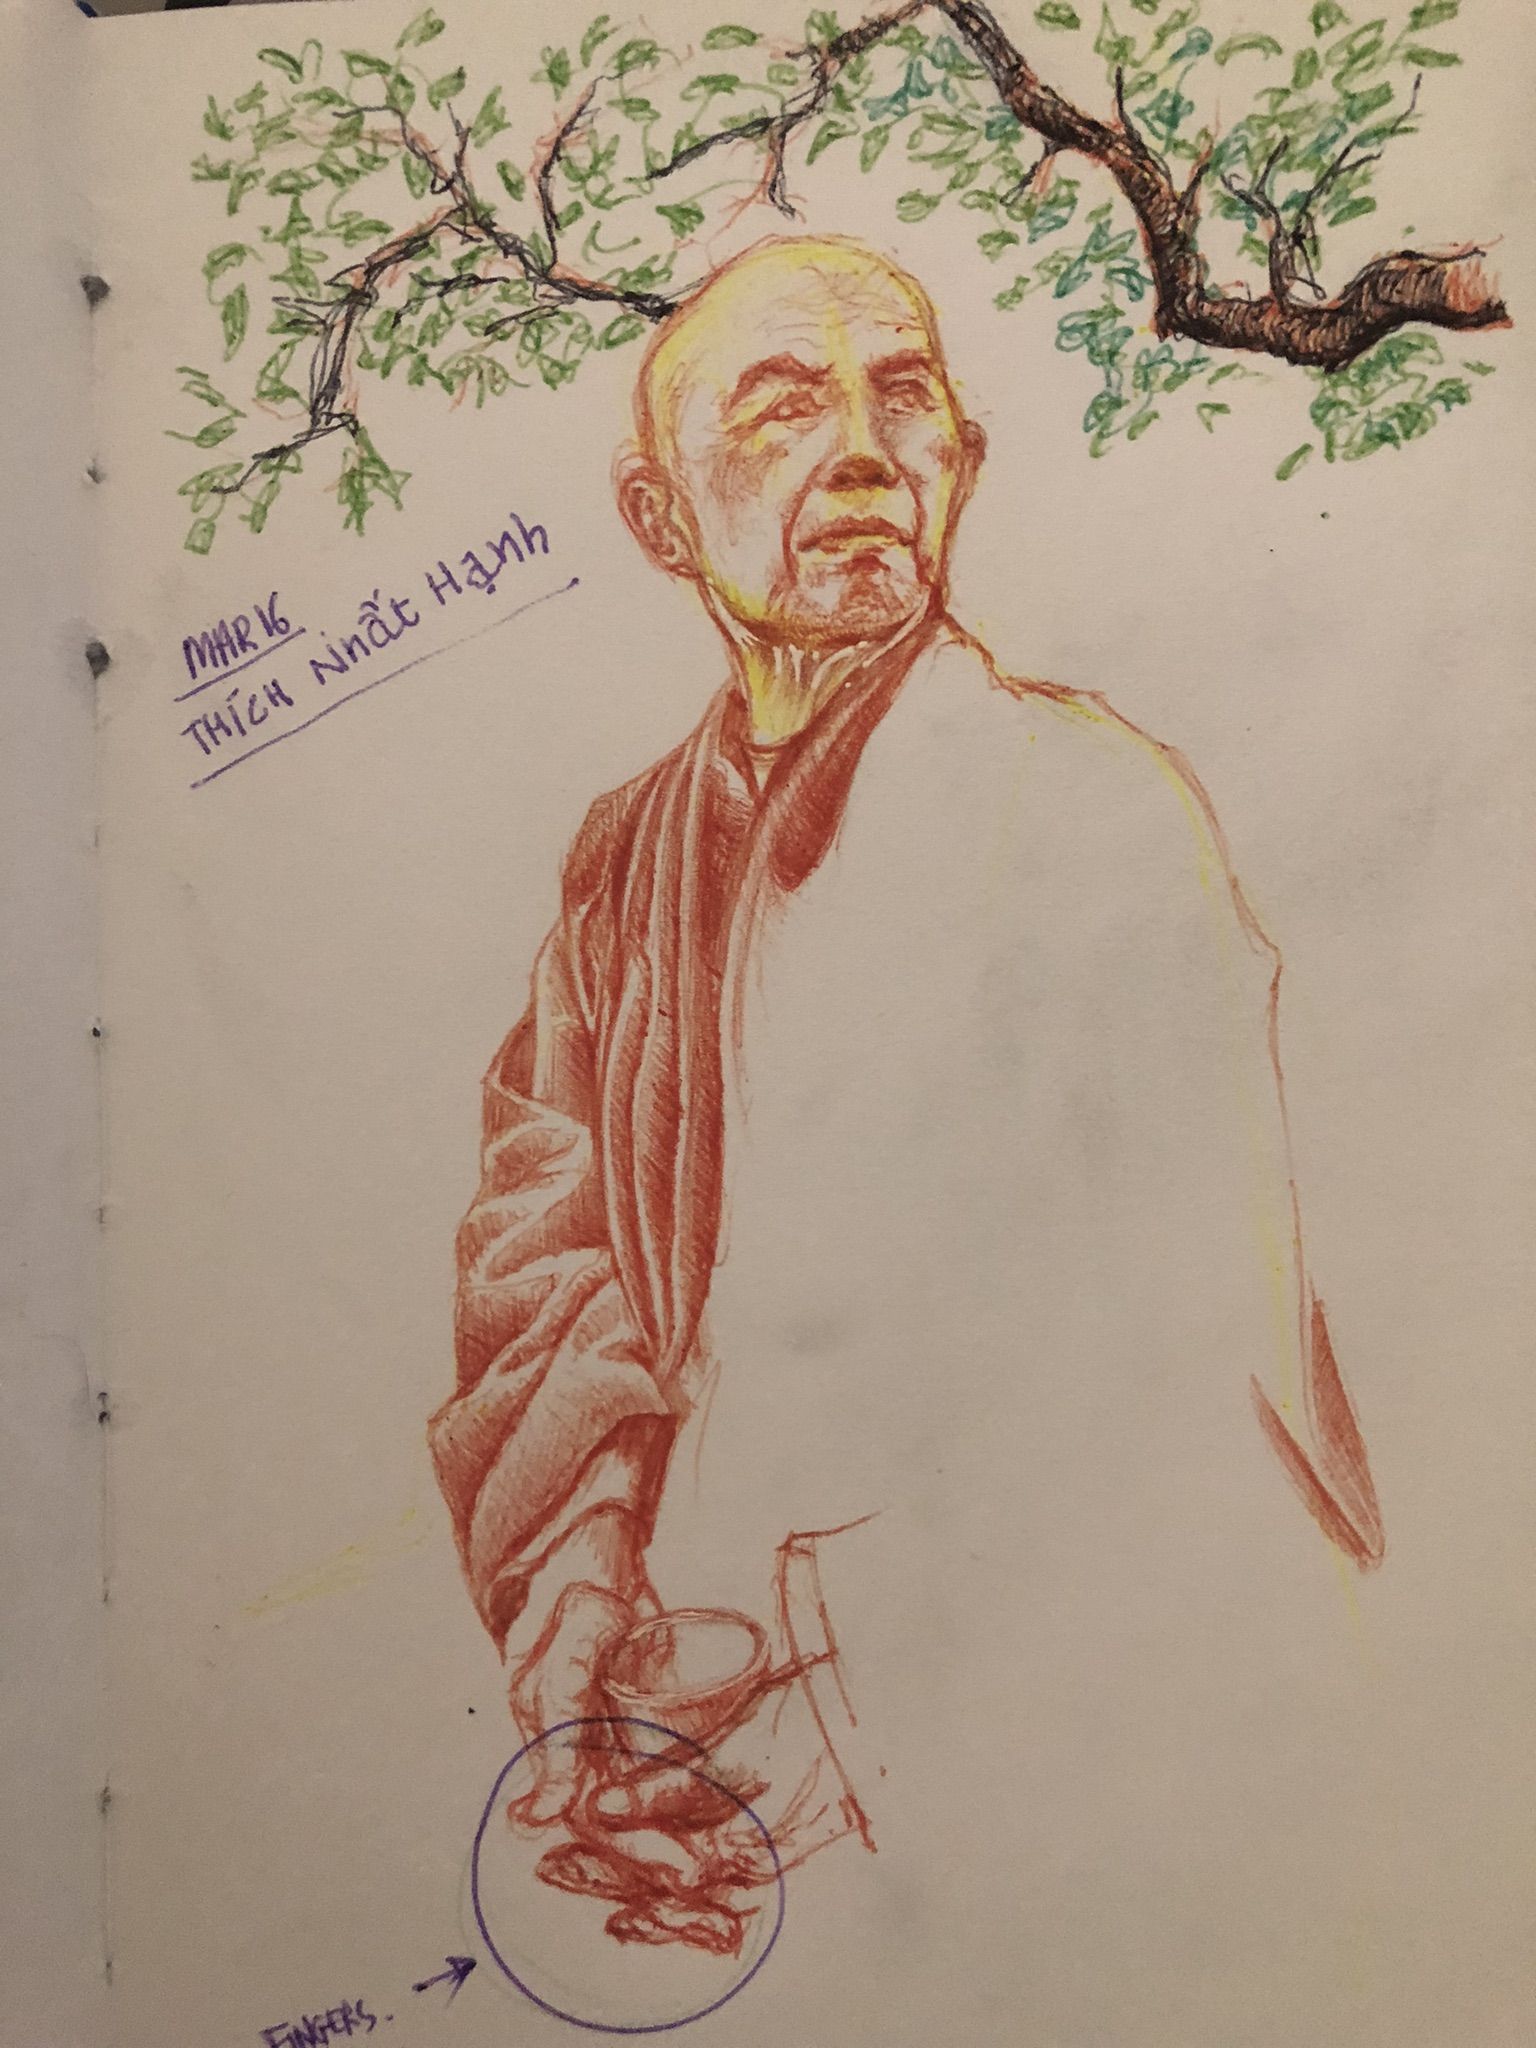 MAR 16
THÍCH NHẤT HẠNH
FINGERS.